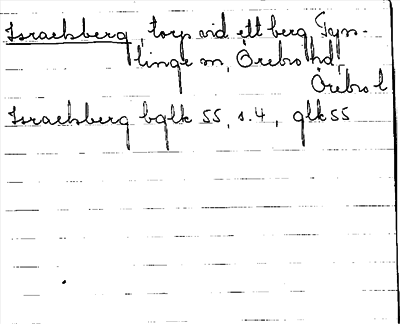 Israelsberg, torp vid ett berg, Tys-
linge sn, Örebro hd,
Örebro l
Israelsberg bglk 55, s. 4, glk 55